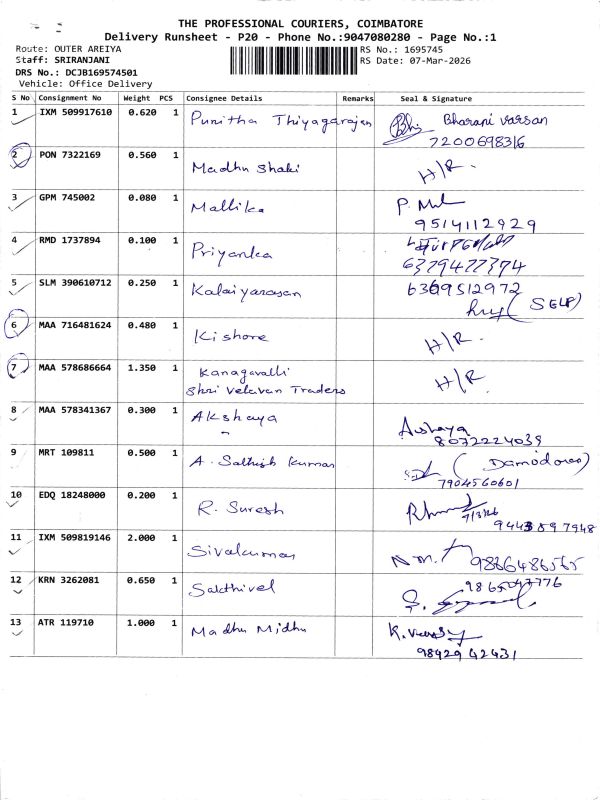 THE PROFESSIONAL COURIERS, COIMBATORE
Delivery Runsheet - P20 - Phone No.:9047080280 - Page No.:1
Route: OUTER AREIYA
RS No.: 1695745
Staff: SRIRANJANI
RS Date: 07-Mar-2026
DRS No.: DCJB169574501
Vehicle: Office Delivery
S No Consignment No Weight PCS Consignee Details Remarks Seal & Signature
1 IXM 509917610 0.620 1 Punitha Thiyagarajan Bharani varsan
7200698316
2 PON 7322169 0.560 1 Madhu Shaki H/R.
3 GPM 745002 0.080 1 Mallika P. 
9514112929
4 RMD 1737894 0.100 1 Priyanka
6379477374
5 SLM 390610712 0.250 1 Kalaiyarasan 6369512972
(SELF)
6 MAA 716481624 0.480 1 Kishore H/R.
7 MAA 578686664 1.350 1 Kanagavalli H/R
Shri Velavan Traders
8 MAA 578341367 0.300 1 Akshaya Akshaya
8072224039
9 MRT 109811 0.500 1 A. Sathish Kumar (Damodaran)
7904560601
10 EDQ 18248000 0.200 1 R. Suresh
7/3/26
9443597948
11 IXM 509819146 2.000 1 Sivakumar 9866486565
12 KRN 3262081 0.650 1 Sakthivel 9865047776
13 ATR 119710 1.000 1 Madhu Midhu
9842942431